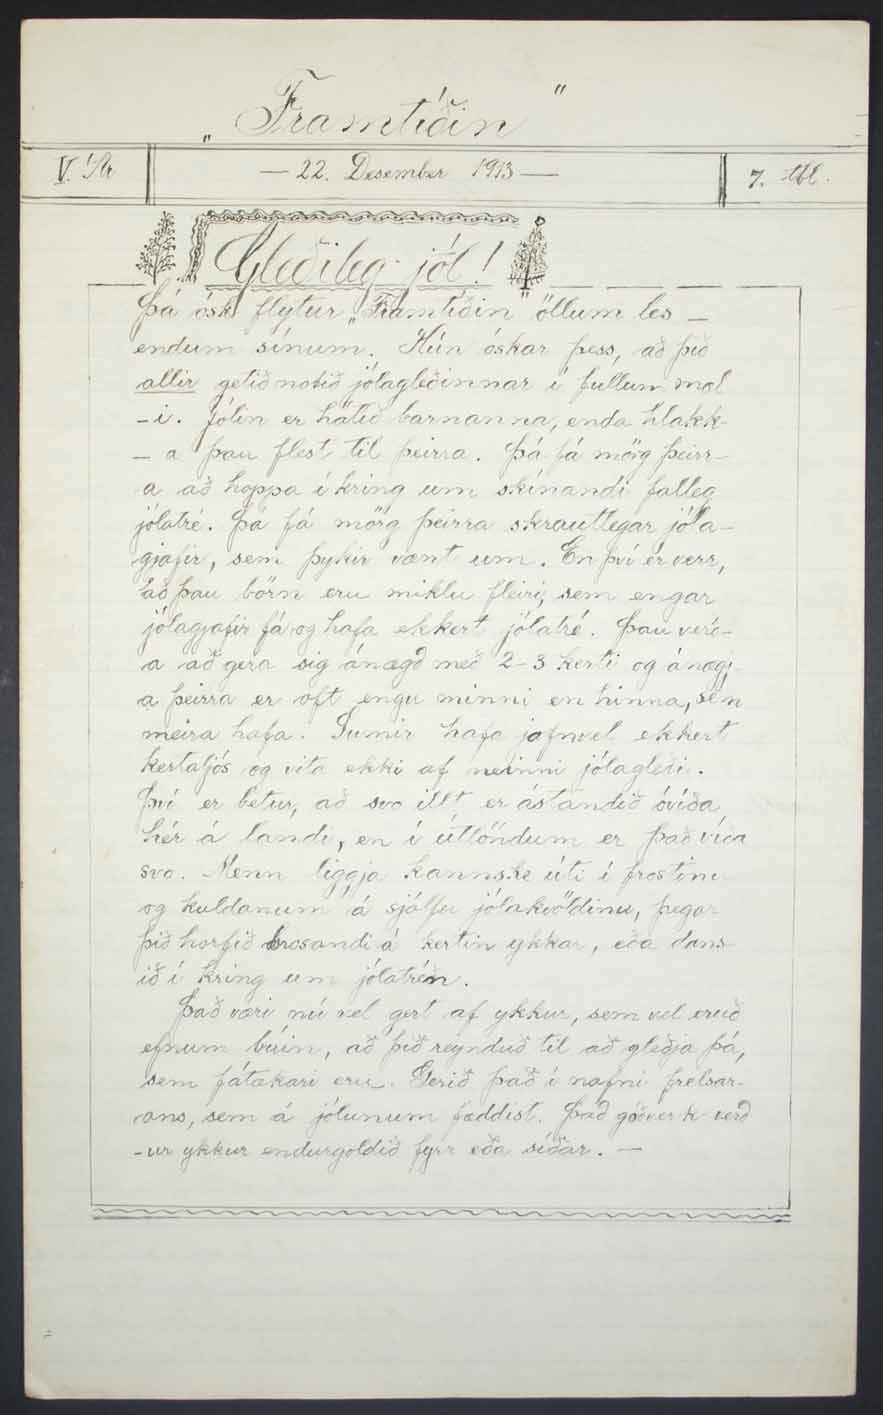 „Framtíðin"
V. Ár — 22. Desember 1913 — 7. tbl.
Gleðileg jól!
Þá ósk flytur „Framtíðin" öllum les –
endum sínum. Hún óskar þess, að þið
allir getið notið jólagleðinnar í fullum mæl
- i. Jólin er hátíð barnanna, enda hlakk-
- a þau flest til þeirra. Þá fá mörg þeirr-
a að hoppa í kring um skínandi falleg
jólatré. Þá fá mörg þeirra skrautlegar jóla-
gjafir, sem þykir vænt um. En því er verr,
að þau börn eru miklu fleiri, sem engar
jólagjafir fá og hafa ekkert jólatré. Þau verð-
a að gera sig ánægð með 2-3 kerti og ánægj-
a þeirra er oft engu minni en hinna, sem
meira hafa. Sumir hafa jafnvel ekkert
kertaljós og vita ekki af neinni jólagleði.
Því er betur, að svo illt er ástandið óvíða
hér á landi, en í útlöndum er það víða
svo. Menn liggja kannske úti í frostinu
og kuldanum á sjálfu jólakvöldinu, þegar
þið horfið brosandi á kertin ykkar, eða dans-
ið í kring um jólatréin.
Það væri nú vel gert af ykkur, sem vel eruð
efnum búin, að þið reynduð til að gleðja þá,
sem fátækari eru. Gerið það í nafni frelsar-
ans, sem á jólunum fæddist. Það góðverk verð
- ur ykkur endurgoldið fyrr eða síðar. —